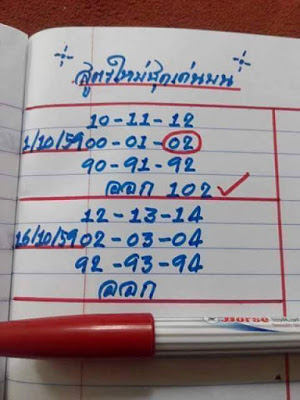 สูตรใหม่สุดเด่นบน
10-11-12
1/10/59 00-01-02
90-91-92
ออก 102 ✓
12-13-14
16/10/59 02-03-04
92-93-94
ออก
Horse